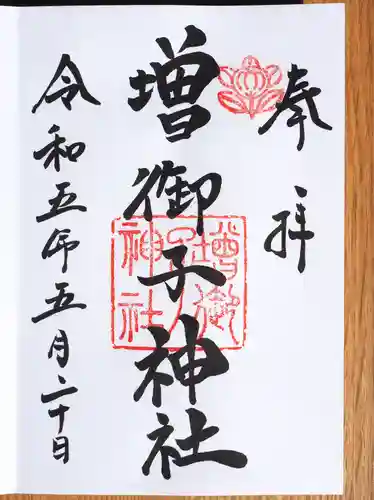 奉拝
増御子神社
令和五年五月二十日
増御
子ノ
神社